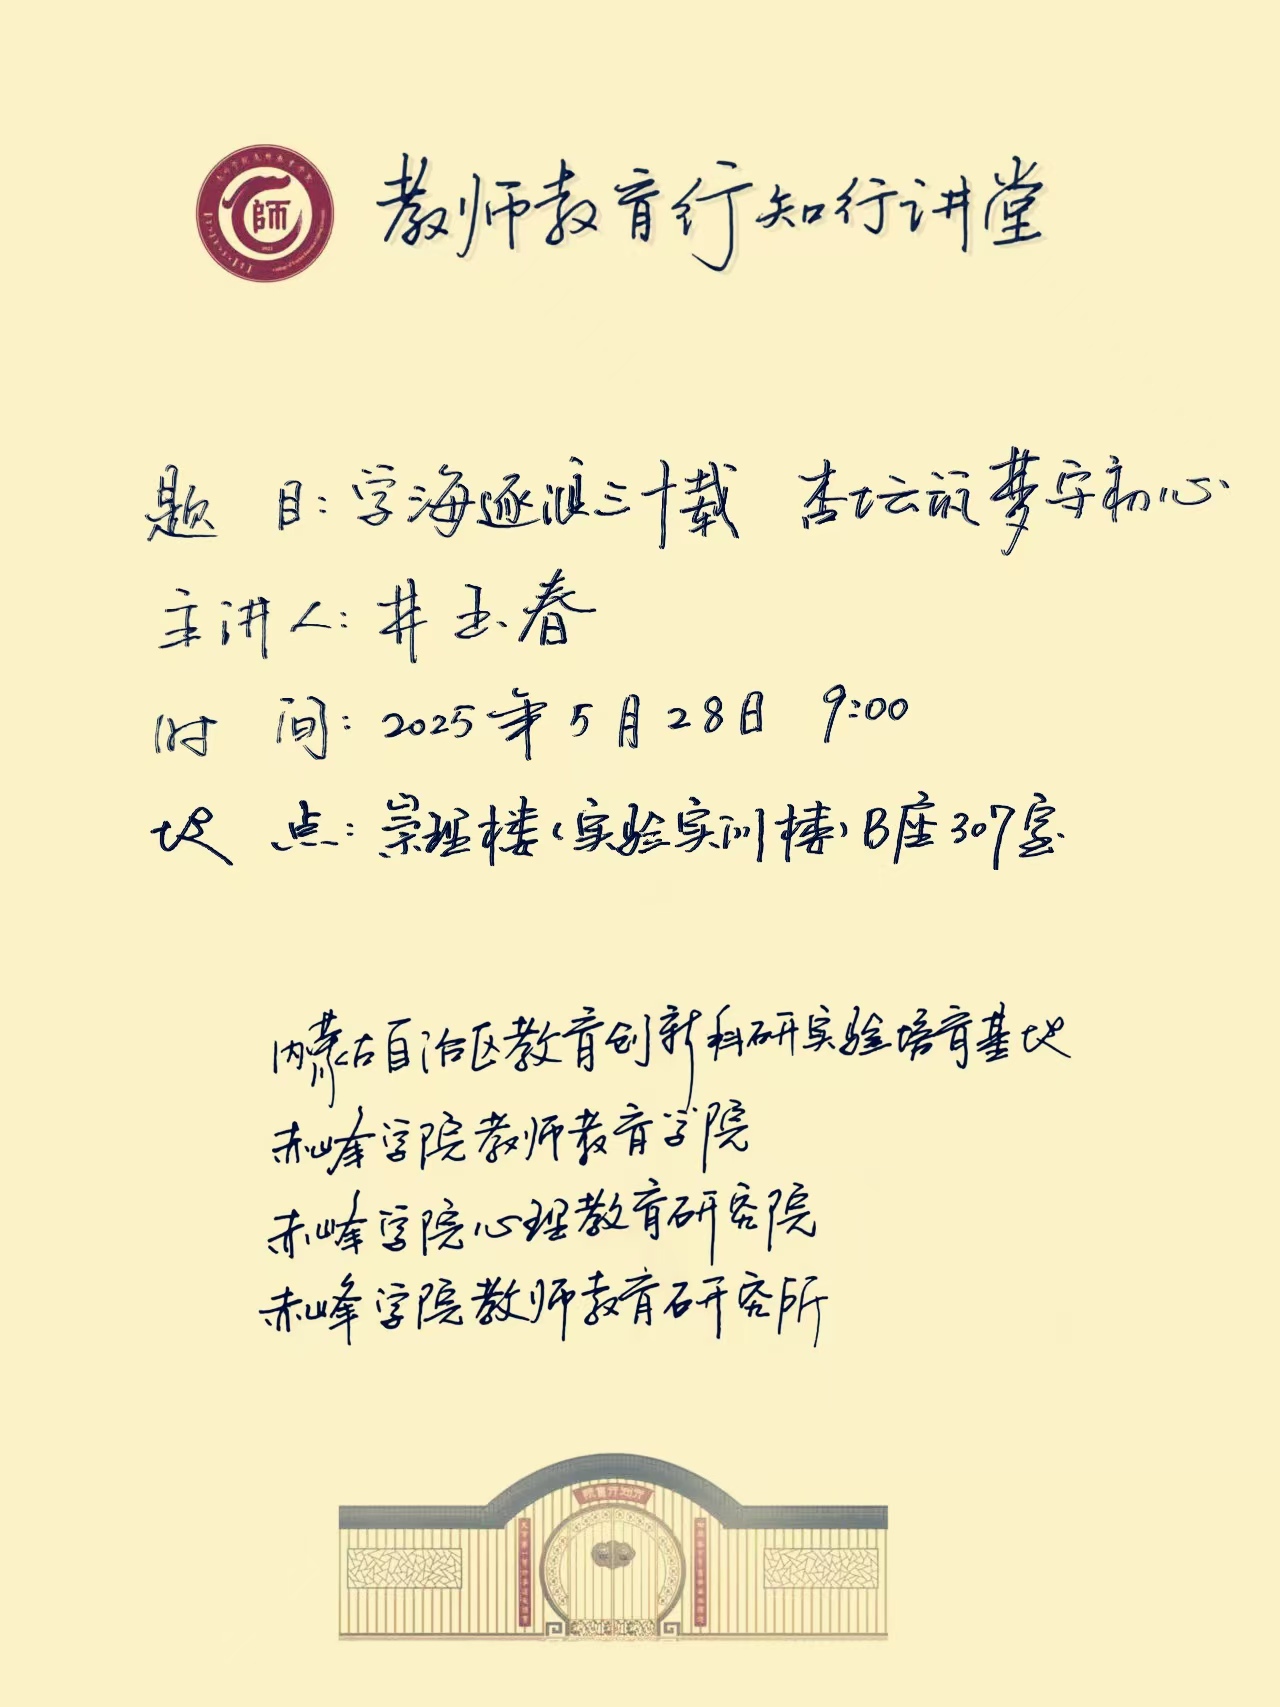 師
教师教育行知行讲堂
题 目:学海逐浪三十载 杏坛筑梦守初心
主讲人:井玉春
时 间:2025年5月28日 9:00
地 点:崇理楼(实验实训楼)B座307室
内蒙古自治区教育创新科研实验培育基地
赤峰学院教师教育学院
赤峰学院心理教育研究院
赤峰学院教师教育研究所